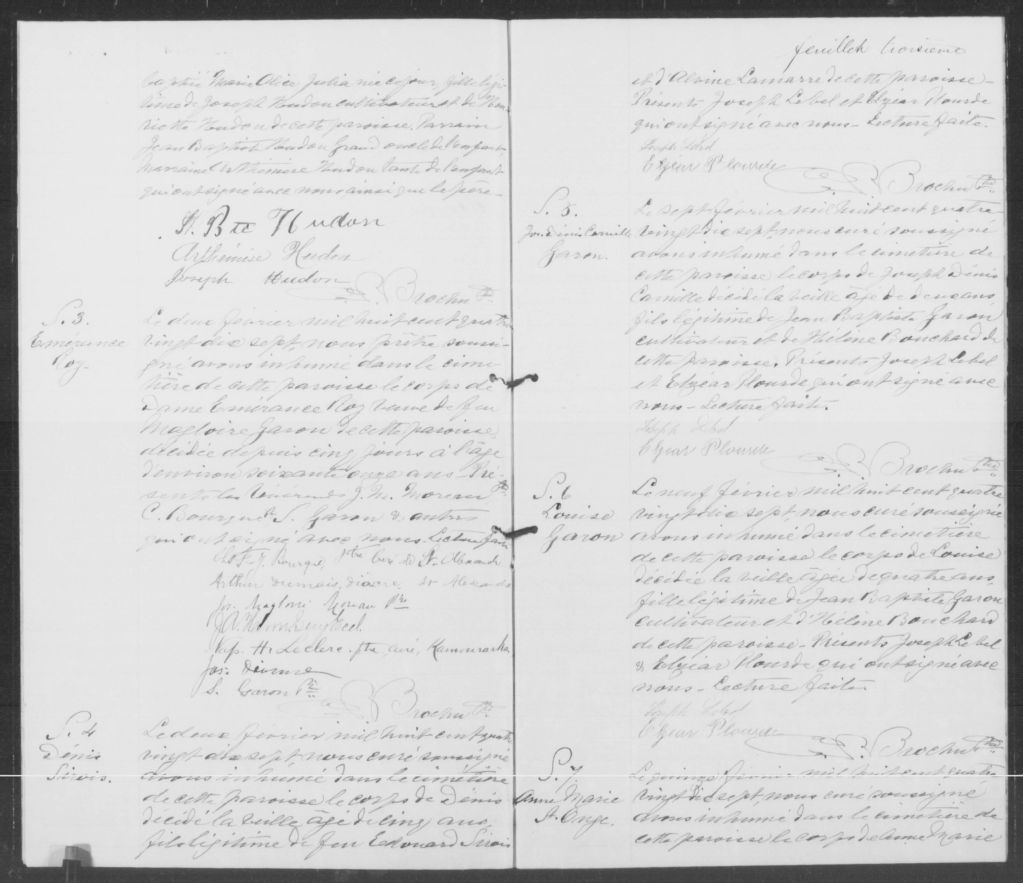 baptisé Marie Alice Julia née ce jour, fille légi-
time de Joseph Hudon cultivateur et de Hen-
riette Hudon de cette paroisse. Parrain
Jean Baptiste Hudon Grand oncle de l'enfant,
Marraine Arthémise Hudon tante de l'enfant
qui ont signé avec nous ainsi que le père -
J. Bte Hudon
Arthémise Hudon
Joseph Hudon
Brochu Ptre
S. 3.
Emérance
Roy.
Le deux février mil huit cent quatre
vingt dix sept, nous prêtre soussi-
gné avons inhumé dans le cime-
tière de cette paroisse le corps de
Dame Emérance Roy veuve de feu
Magloire Garon de cette paroisse,
décédée depuis cinq jours à l'âge
d'environ soixante onze ans - Pré-
sents les Révérends J. M. Moreau Ptre
C. Bourque, S. Garon & autres
qui ont signé avec nous. Lecture faite
Bourque, Ptre Curé de St. Alexandre
Arthur Dumais, diacre, St Alexandre
Jos. Magloire Moreau Ptre
H. Leclerc, ptre, curé, Kamouraska
Jos. Dionne
S. Garon Ptre
Brochu Ptre
S. 4
Dénis
Sirois.
Le deux février mil huit cent quatre
vingt dix sept, nous curé soussigné
avons inhumé dans le cimetière
de cette paroisse le corps de Dénis
décédé la veille âgé de cinq ans,
fils légitime de feu Edouard Sirois
feuillet troisième
et d'Alvine Lamarre de cette paroisse -
Présents Joseph Lebel et Elzéar Plourde
qui ont signé avec nous - Lecture faite.
Joseph Lebel
Elzéar Plourde
Brochu Ptre
S. 5.
Jos. Dénis Camille
Garon.
Le sept février mil huit cent quatre
vingt dix sept, nous curé soussigné
avons inhumé dans le cimetière de
cette paroisse le corps de Joseph Dénis
Camille décédé la veille âgé de deux ans,
fils légitime de Jean Baptiste Garon
cultivateur et de Hélène Bouchard de
cette paroisse. Présents Joseph Lebel
et Elzéar Plourde qui ont signé avec
nous - Lecture faite.
Joseph Lebel
Elzéar Plourde
Brochu Ptre
S. 6
Louise
Garon
Le neuf février mil huit cent quatre
vingt dix sept, nous curé soussigné
avons inhumé dans le cimetière
de cette paroisse le corps de Louise
décédée la veille âgée de quatre ans,
fille légitime de Jean Baptiste Garon
cultivateur et d'Hélène Bouchard
de cette paroisse - Présents Joseph Lebel
& Elzéar Plourde qui ont signé avec
nous - Lecture faite.
Joseph Lebel
Elzéar Plourde
Brochu Ptre
S. 7.
Anne Marie
St. Onge.
Le quinze février mil huit cent quatre
vingt dix sept, nous curé soussigné
avons inhumé dans le cimetière de
cette paroisse le corps de Anne Marie